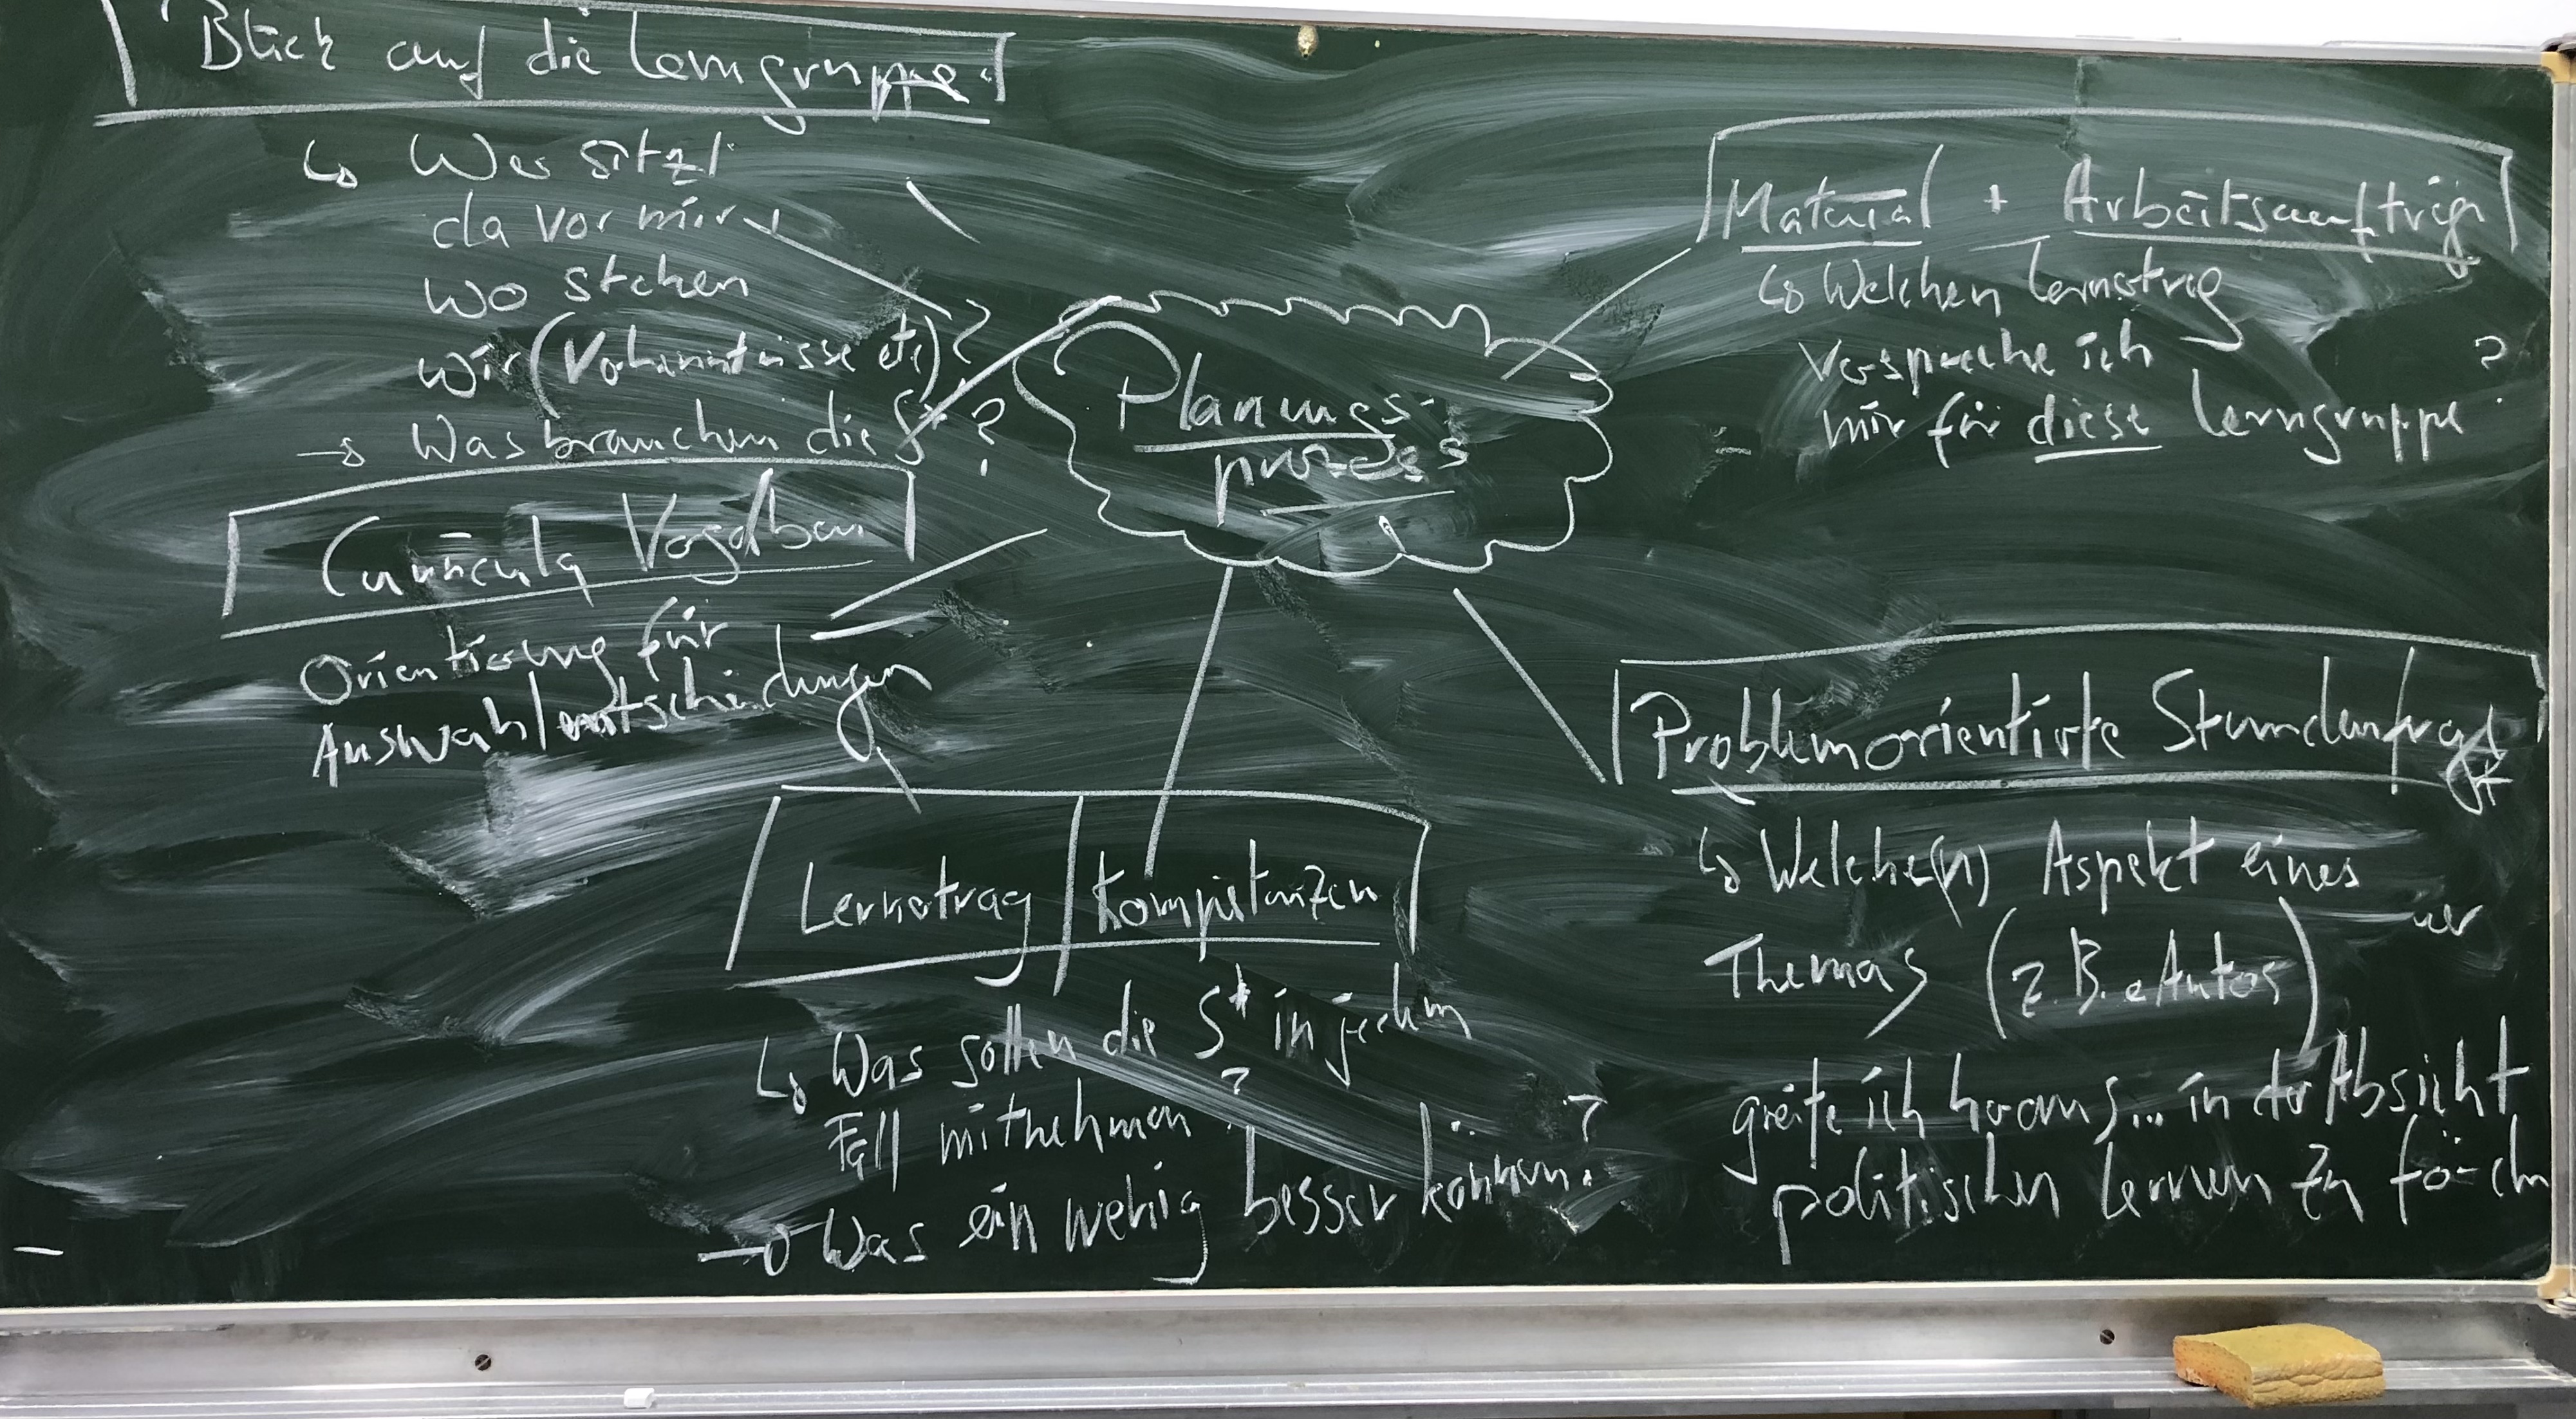 Blick auf die Lerngruppe
↳ Wer sitzt
da vor mir
wo stehen
wir (Vorkenntnisse etc) ?
→ Was brauchen die S* ?
Curricula Vorgaben
Orientierung für
Auswahlentscheidungen
Planungs-
prozess
Material + Arbeitsaufträge
↳ Welchen Lernertrag
verspreche ich
mir für diese Lerngruppe ?
Lernertrag | Kompetenzen
↳ Was sollen die S* in jedem
Fall mitnehmen ?
→ Was ein wenig besser können ?
Problemorientierte Stundenfrage
↳ Welche(n) Aspekt eines
Themas (z.B. Autos)
greife ich heraus... in der Absicht
politisches Lernen zu fördern